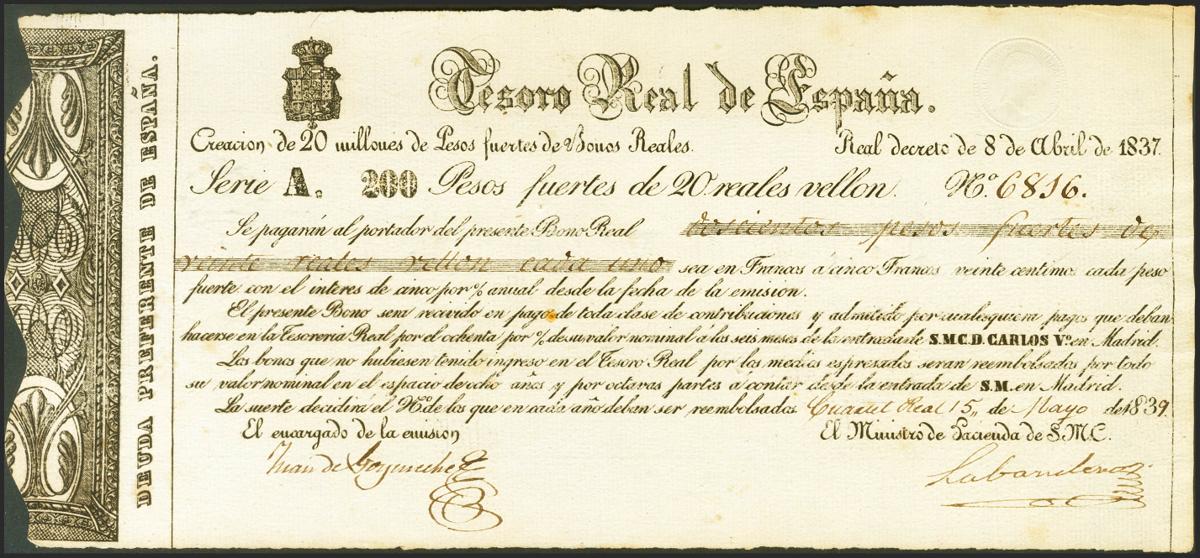 DEUDA PREFERENTE DE ESPAÑA.
Tesoro Real de España.
Creacion de 20 millones de Pesos fuertes de Bonos Reales. Real decreto de 8 de Abril de 1837.
Serie A. 200 Pesos fuertes de 20 reales vellon. Nº 6816.
Se pagarán al portador del presente Bono Real doscientos pesos fuertes de
veinte reales vellon cada uno sea en Francos á cinco Francos veinte centimos cada peso
fuerte con el interes de cinco por % anual desde la fecha de la emision.
El presente Bono sera recivido en pago de toda clase de contribuciones y admitido por cualesquiera pagos que deban
hacerse en la Tesoreria Real por el ochenta por % de su valor nominal á los seis meses de la entrada de S.M.C.D. CARLOS Vº. en Madrid.
Los bonos que no hubiesen tenido ingreso en el Tesoro Real por los medios espresados seran reembolsados por todo
su valor nominal en el espacio de ocho años y por octavas partes a contar desde la entrada de S.M. en Madrid.
La suerte decidirá el Nº de los que en cada año deban ser reembolsados. Cuartel Real 15 de Mayo de 1839.
El encargado de la emision El Ministro de Hacienda de S.M.C.
Juan de Goyeneche Labandero